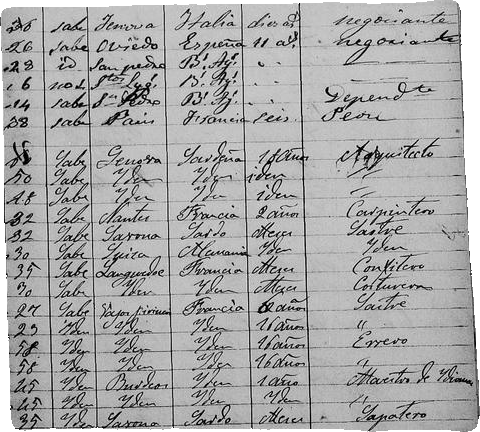 26 sabe Genova Italia dies as negociante
26 sabe Oviedo España 11 as negociante
28 id San pedro Bs As " "
16 no s. Bs As " "
14 sabe Sn Pedro Bs As " " Dependte
38 sabe Paris Francia seis Peon
Sabe Genova Sardeña 18 años Arquitecto
50 Sabe Yden Yden iden "
48 Sabe Yden Yden iden "
32 Sabe Nantes Francia 2 años Carpintero
32 Sabe Saxona Sardo Meses Sastre
30 Sabe Alemania Yden Yden
35 Sabe Languedoc Francia Meses Confitero
30 Sabe Yden Yden Meses Costurera
27 Sabe Francia años Sastre
23 Yden Yden Yden 16 años "
58 Yden Yden Yden 16 años Errero
58 Yden Yden Yden 16 años "
45 Yden Burdeos Yden 1 año Maestro de
45 Yden Yden Yden Yden "
35 Yden Saxona Sardo Meses Sapatero